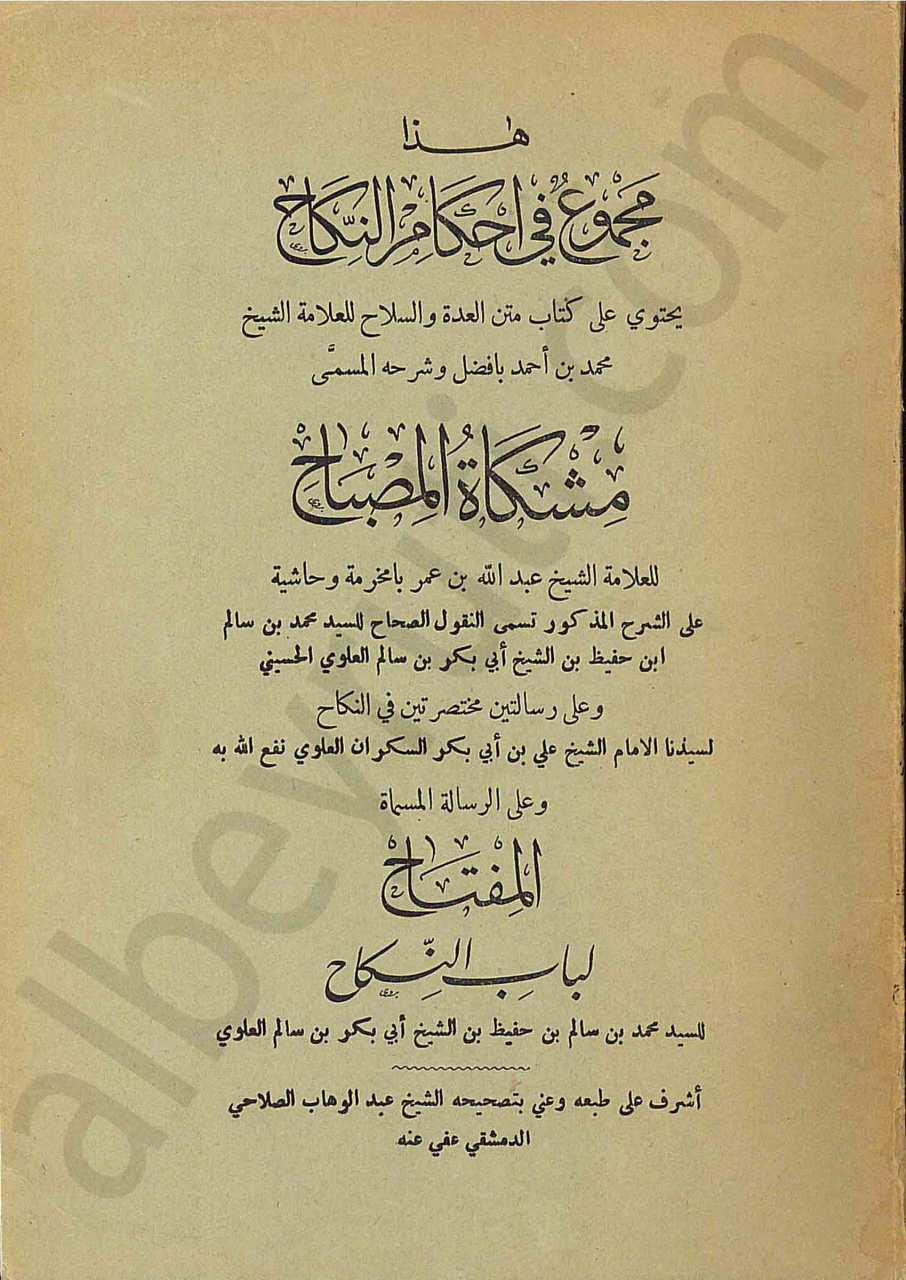 هٰذا
مَجْمُوعٌ فِي اَحْكَامِ النِّكَاحِ
يحتوي على كتاب متن العدة والسلاح للعلامة الشيخ
محمد بن أحمد بافضل وشرحه المسمَّى
مِشْكَاةُ الْمِصْبَاحِ
للعلامة الشيخ عبد الله بن عمر بامخرمة وحاشية
على الشرح المذكور تسمى النقول الصحاح للسيد محمد بن سالم
ابن حفيظ بن الشيخ أبي بكر بن سالم العلوي الحسيني
وعلى رسالتين مختصرتين في النكاح
لسيدنا الامام الشيخ علي بن أبي بكر السكران العلوي نفع الله به
وعلى الرسالة المسماة
الْمِفْتَاحُ
لبابِ النِّكاح
للسيد محمد بن سالم بن حفيظ بن الشيخ أبي بكر بن سالم العلوي
أشرف على طبعه وعني بتصحيحه الشيخ عبد الوهاب الصلاحي
الدمشقي عفي عنه